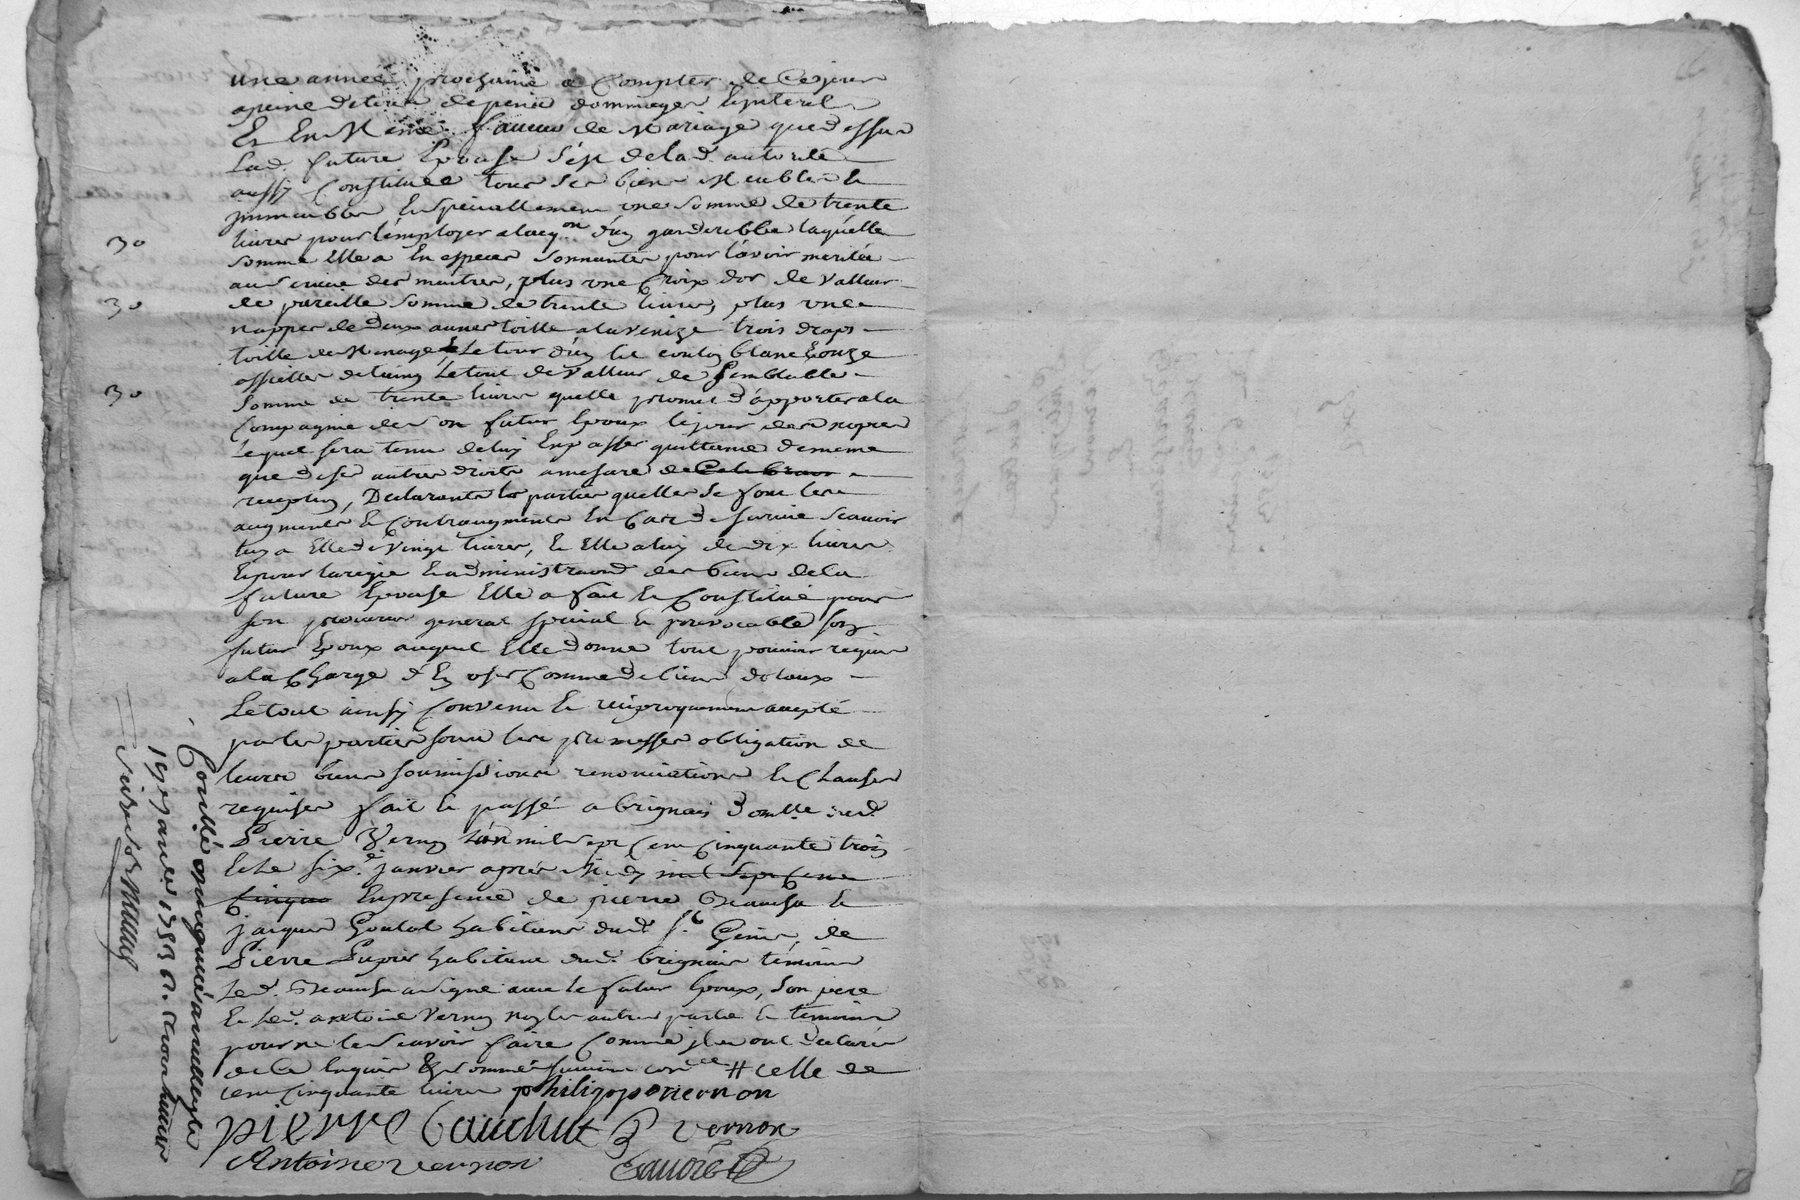 une année prochaine a Compter de Cejour
apeine detous depens dommages Epinterets
Et En Meme faveur de Mariage que dessus
Lad. future Epouse s'est delad. autorité
aussy Constituee tous ses biens Meubles Et
jmmeubles Enspeciallement une somme de trente
30
livres pour l'employer alacq.on d'un garderobbe laquelle
somme Elle a En especes sonnantes pour l'avoir meritée
au service des maitres, plus une Croix d'or de Valleur
30
de pareille somme de trente livres, plus une
nappes de deux aunes toille alavenize trois draps
toille de Menage & Le tour d'un lit couton blanc Et onze
assiettes detaing Letout de Valleur de semblable
30
somme de trente livres quelle promet d'apporter ala
Compagnie de son futur Epoux lejour des nopces
Lequel sera tenu deluy En passer quittance dememe
que deses autres droits amesure de
reception, Declarants les parties quelles se font les
augments Et Contraugments En Cas de survie scavoir
luy a Elle de Vingt livres, Et Elle aluy de dix livres
Epour laregie Et administraond des biens dela
future Epouse Elle a fait Et Constitué pour
son procureur general special Et jrrevocable son
futur Epoux auquel Elle donne tout pouvoir requis
ala Charge d'En user Comme de biens dotaux
Letout ainsy Convenu Et reciproquement accepté
par les parties sous les promesses obligation de
leurs biens soumissions renonciations Et Clauses
requises fait Et passé a brignais Domlle dud.
Pierre Vernon L'an mil sept Cent Cinquante trois
Et Le six.e janvier aprés Midy mil sept Cent
Cinqua Enpresence de pierre
jacques Goutol habitans dud. st. Genis, de
Pierre Dupois habitant aud. brignais temoins
Led. a signé avec le futur Epoux, son pere
Et led. antoine Vernon non les autres parties Et temoins
pour ne le scavoir faire Comme jls ont declarés
de Ce Enquis Et sommés suivant lord.ce # celle de
cent Cinquante livres philippe vernon
pierre Gauchut P vernon
Antoine vernon
Conttlé
19 janvier 1753